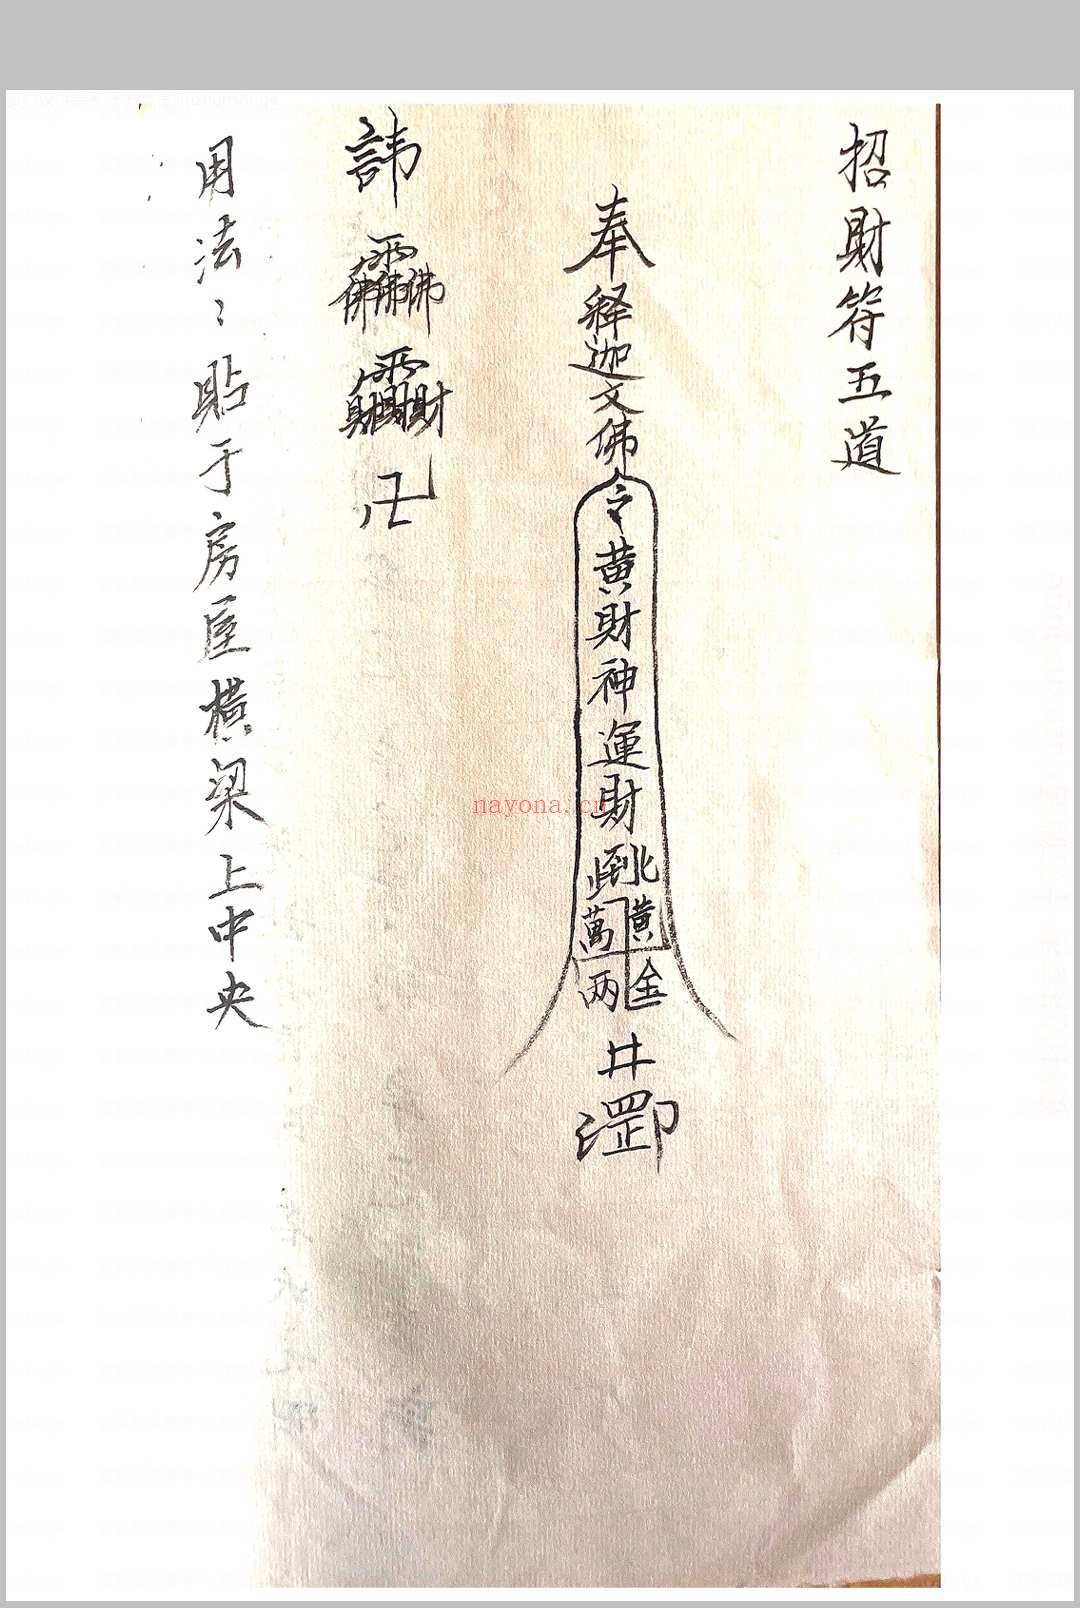 招財符五道
奉释迦文佛令黄財神運財到此北黄金萬两井罡印
諱
卍
用法：貼于房屋横梁上中央
nayona.cn